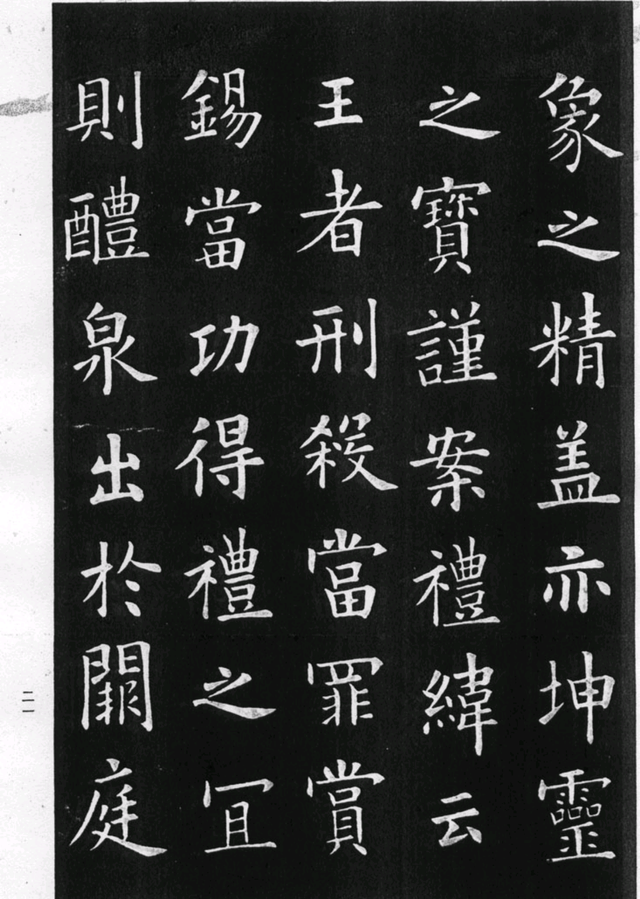 象之精盖亦坤靈
之寶謹案禮緯云
王者刑殺當罪賞
錫當功得禮之冝
則醴泉出於闕庭
二一